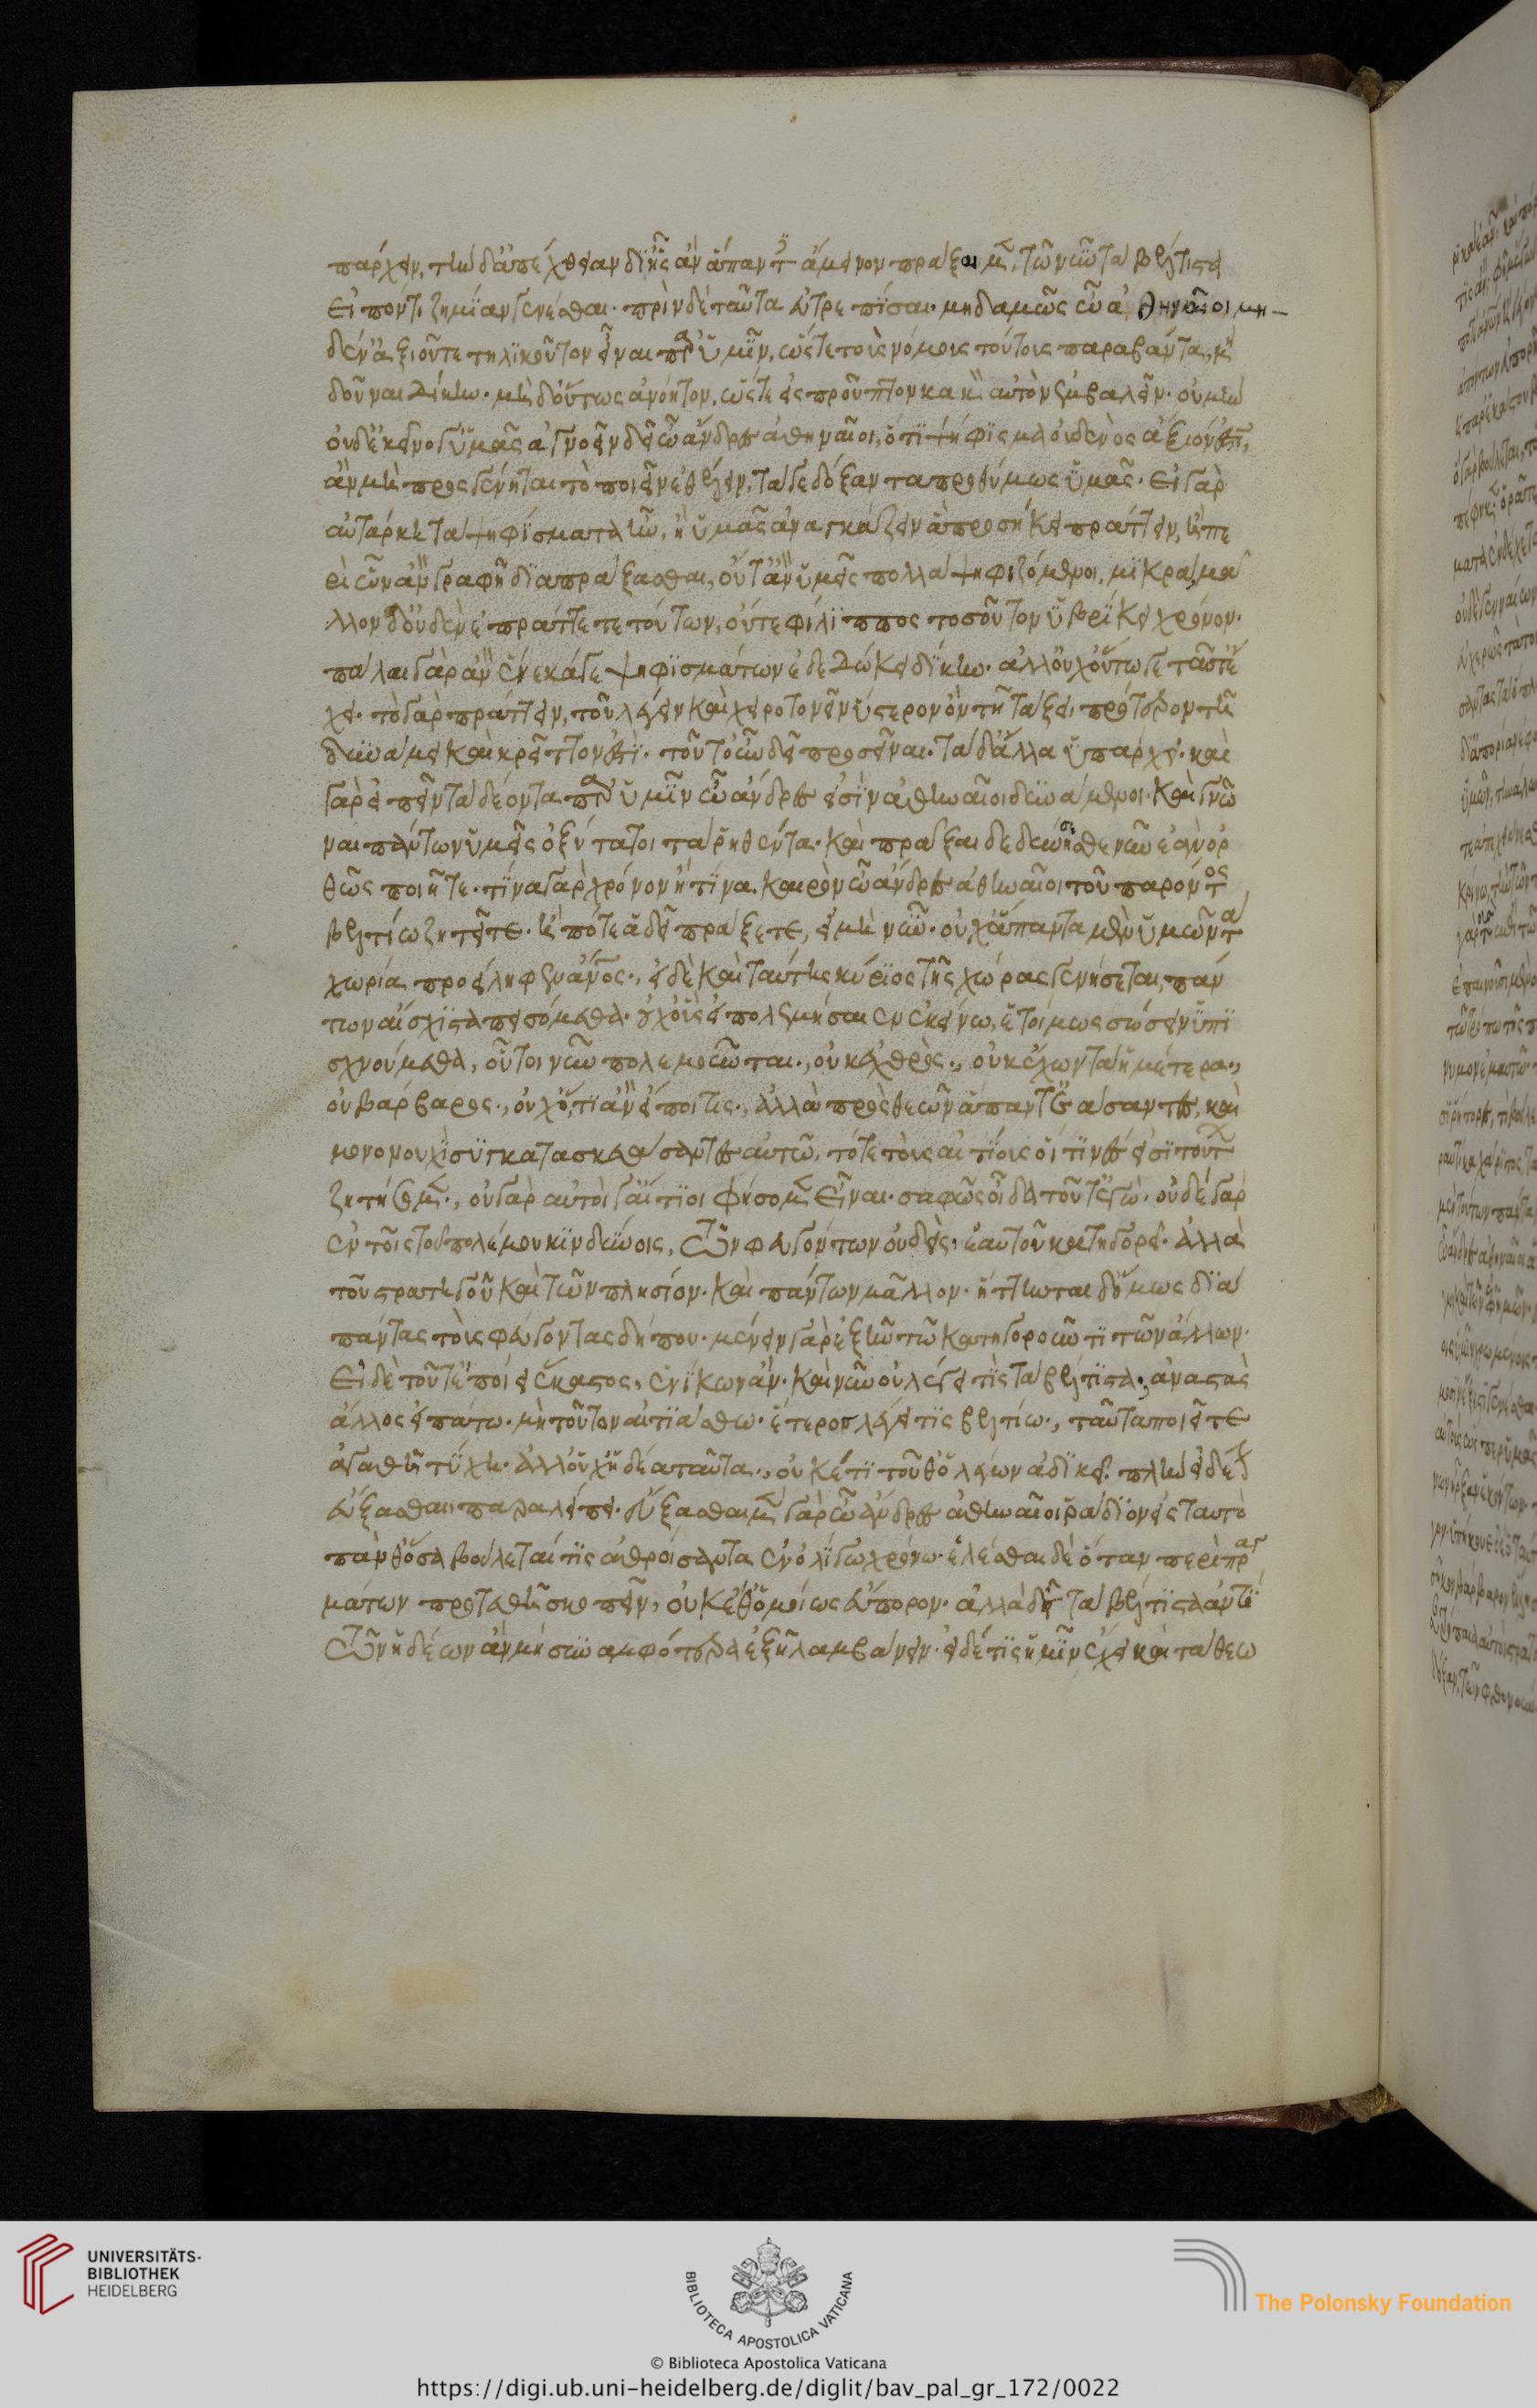 πάρχειν, τὴν δ' ἀπέχθειαν δι' ἧς ἂν ἅπαντες ἄμεινον πράξαιμεν, τῷ νῦν τὰ βέλτιστα
εἰπόντι ζημίαν γενέσθαι. πρὶν δὲ ταῦτα εὐτρεπίσαι. μηδαμῶς ὦ ἄ Ἀθηναῖοι μη-
δέν' ἀξιοῦτε τηλικοῦτον εἶναι παρ' ὑμῖν, ὥστε τοὺς νόμους τούτους παραβάντα, μὴ
δοῦναι δίκην. μηδ' οὕτως ἀνόητον, ὥστε εἰς προῦπτον κακὸν αὑτὸν ἐμβαλεῖν. οὐ μὴν
οὐδ' ἐκεῖνό γ' ὑμᾶς ἀγνοεῖν δεῖ ὦ ἄνδρες ἀθηναῖοι, ὅτι ψήφισμα οὐδενὸς ἄξιόν ἐστιν,
ἂν μὴ προσγένηται τὸ ποιεῖν ἐθέλειν, τά γε δόξαντα προθύμως ὑμᾶς. Εἰ γὰρ
αὐτάρκη τὰ ψηφίσματα ἦν, ἢ ὑμᾶς ἀναγκάζειν ἃ προσήκει πράττειν, ἢ πε
ρὶ ὧν ἂν γραφῇ διαπράξασθαι, οὔτ' ἂν ὑμεῖς πολλὰ ψηφιζόμενοι, μικρὰ, μᾶ
λλον δ' οὐδὲν ἐπράττετε τούτων, οὔτε φίλιππος τοσοῦτον ὑβρίκει χρόνον.
πάλαι γὰρ ἂν ἕνεκά γε ψηφισμάτων ἐδεδώκει δίκην. ἀλλ' οὐχ οὕτω γε ταῦτ' ἔ
χει. τὸ γὰρ πράττειν, τοῦ λέγειν καὶ χειροτονεῖν ὕστερον ὂν τῇ τάξει, πρότερον τῇ
δυνάμει καὶ κρεῖττόν ἐστι. τοῦτ' οὖν δεῖ προσεῖναι. τὰ δ' ἄλλα ὑπάρχει. καὶ
γὰρ εἰπεῖν τὰ δέοντα παρ' ὑμῖν ὦ ἄνδρες εἰσὶν ἀθηναῖοι δυνάμενοι. Καὶ γνῶ
ναι πάντων ὑμεῖς ὀξύτατοι τὰ ῥηθέντα. καὶ πρᾶξαι δὲ δυνήσεσθε νῦν ἐὰν ὀρ
θῶς ποιῆτε. τίνα γὰρ χρόνον ἢ τίνα καιρὸν ὦ ἄνδρες ἀθηναῖοι τοῦ παρόντος
βελτίω ζητεῖτε. ἢ πότε ἃ δεῖ πράξετε, εἰ μὴ νῦν. οὐχ ἅπαντα μὲν ὑμῶν τὰ
χωρία προείληφεν ἄνθρωπος., εἰ δὲ καὶ ταύτης κύριος τῆς χώρας γενήσεται, πάν
των αἴσχιστα πεισόμεθα. οὐχ οὓς εἰ πολεμήσαιεν ἐκείνω, ἑτοίμως σώσειν ὑπι
σχνούμεθα, οὗτοι νῦν πολεμοῦνται., οὐκ ἐχθρὸς., οὐκ ἔχων τὰ ἡμέτερα.,
οὐ βάρβαρος., οὐχ ὅ,τι ἂν εἴποι τις., ἀλλὰ πρὸς θεῶν ἅπαντ' ἐάσαντες, καὶ
μονονουχὶ συγκατασκευάσαντες αὐτῶ, τότε τοὺς αἰτίους οἵτινές εἰσι τούτων
ζητήσομεν., οὐ γὰρ αὐτοί γ' αἴτιοι φήσομεν εἶναι. σαφῶς οἶδα τοῦτ' ἐγώ. οὐδὲ γὰρ
ἐν τοῖς τοῦ πολέμου κινδύνοις, τῶν φυγόντων οὐδεὶς ἑαυτοῦ κατηγορεῖ. ἀλλὰ
τοῦ στρατηγοῦ καὶ τῶν πλησίον. καὶ πάντων μᾶλλον. ἥττηνται δ' ὅμως διὰ
πάντας τοὺς φεύγοντας δήπου. μένειν γὰρ ἐξῆν τῶ κατηγοροῦντι τῶν ἄλλων.
Εἰ δὲ τοῦτ' ἐποίει ἕκαστος, ἐνίκων ἄν. καὶ νῦν οὐ λέγει τὶς τὰ βέλτιστα. ἀναστὰς
ἄλλος εἰπάτω. μὴ τοῦτον αἰτιάσθω. ἕτερος λέγει τὶς βελτίω., ταῦτα ποιεῖτε
ἀγαθῇ τύχη. ἀλλ' οὐχ ἡδέα ταῦτα., οὐκέτι τοῦθ' ὁ λέγων ἀδικεῖ. πλὴν εἰ δέον
εὔξασθαι, παραλείπει. εὔξασθαι μὲν γὰρ ὦ ἄνδρες ἀθηναῖοι ῥάδιον εἰς ταυτὸ
πάνθ' ὅσα βούλεταί τις ἀθροίσαντα ἐν ὀλίγω χρόνω. ἑλέσθαι δὲ ὅταν περὶ πραγ
μάτων προτεθῇ σκοπεῖν, οὐκέθ' ὁμοίως εὔπορον. ἀλλὰ δεῖ τὰ βέλτιστα ἀντὶ
τῶν ἡδέων ἂν μὴ συναμφότερα ἐξῇ λαμβάνειν. εἰ δέ τις ἡμῖν ἔχει καὶ τὰ θεω
UNIVERSITÄTS-
BIBLIOTHEK
HEIDELBERG
BIBLIOTECA APOSTOLICA VATICANA
The Polonsky Foundation
© Biblioteca Apostolica Vaticana
https://digi.ub.uni-heidelberg.de/diglit/bav_pal_gr_172/0022